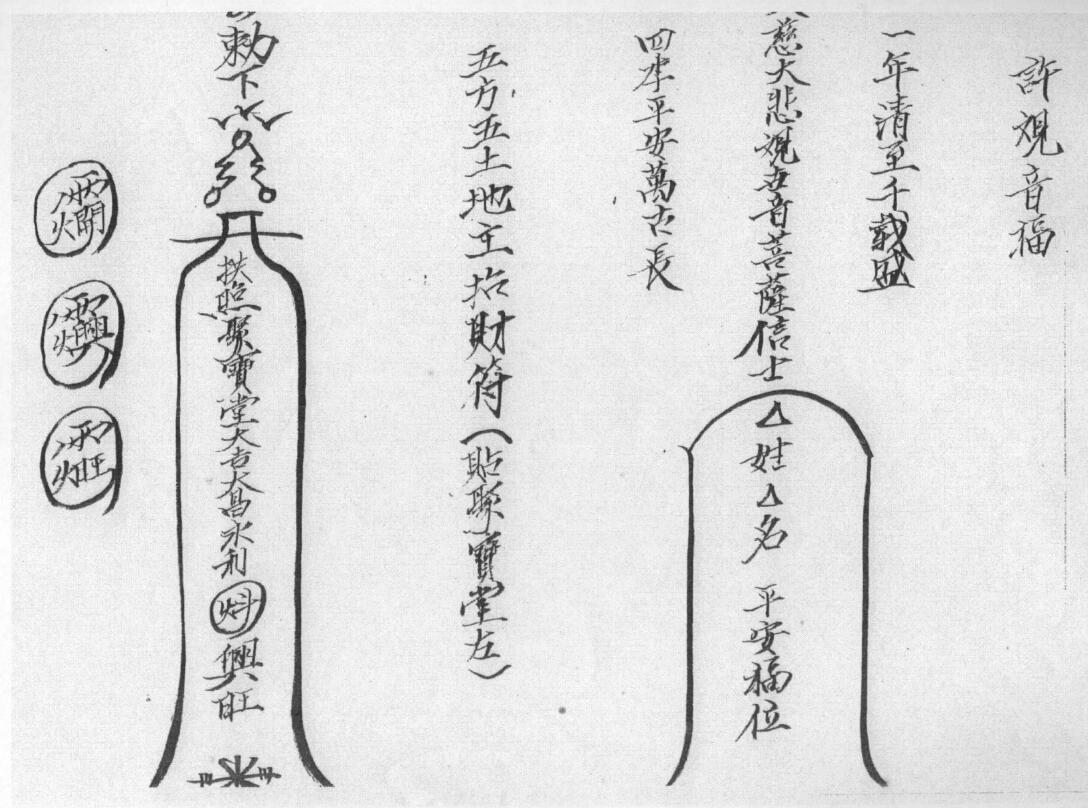 許观音福
一年清至千載盛
慈大悲观世音菩薩信士 △姓△名 平安福位
四季平安萬古長
五方五土地主招財符（貼聚寶堂左）
勅下
扶 聚寶堂大吉大昌水利 興旺